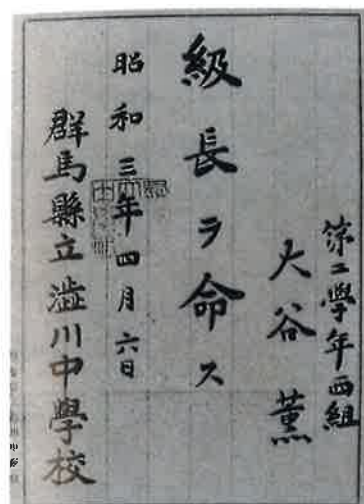 第二學年西組
大谷薫
級長ヲ命ス
昭和三年四月六日
群馬縣立澁川中學校